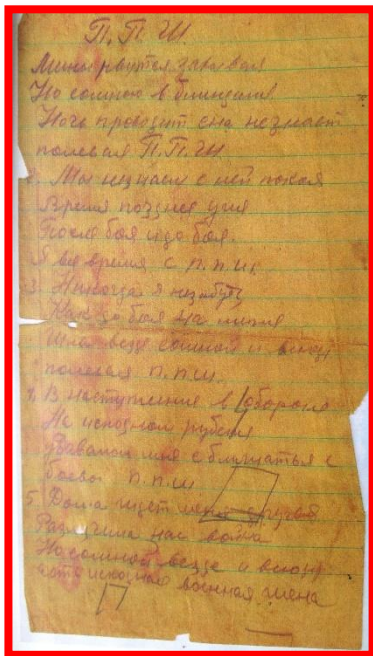 П.П.Ж.
Мины рвутся завывая
Но со мною в блиндаже
Ночь проводит сна не знает
полевая П.П.Ж
2. Мы не знаем с ней покоя
Время позднее уже
После боя и до боя.
Я все время с п.п.ж.
3. Никогда я не забуду
Как до боя на
Шла везде со мной и всюду
полевая п.п.ж.
4. В наступление в обороне
На исходном рубеже
мне с
боевой п.п.ж
5. Дома ждет меня другая
Разлучила нас война
Но со мной везде и всюду
военная жена